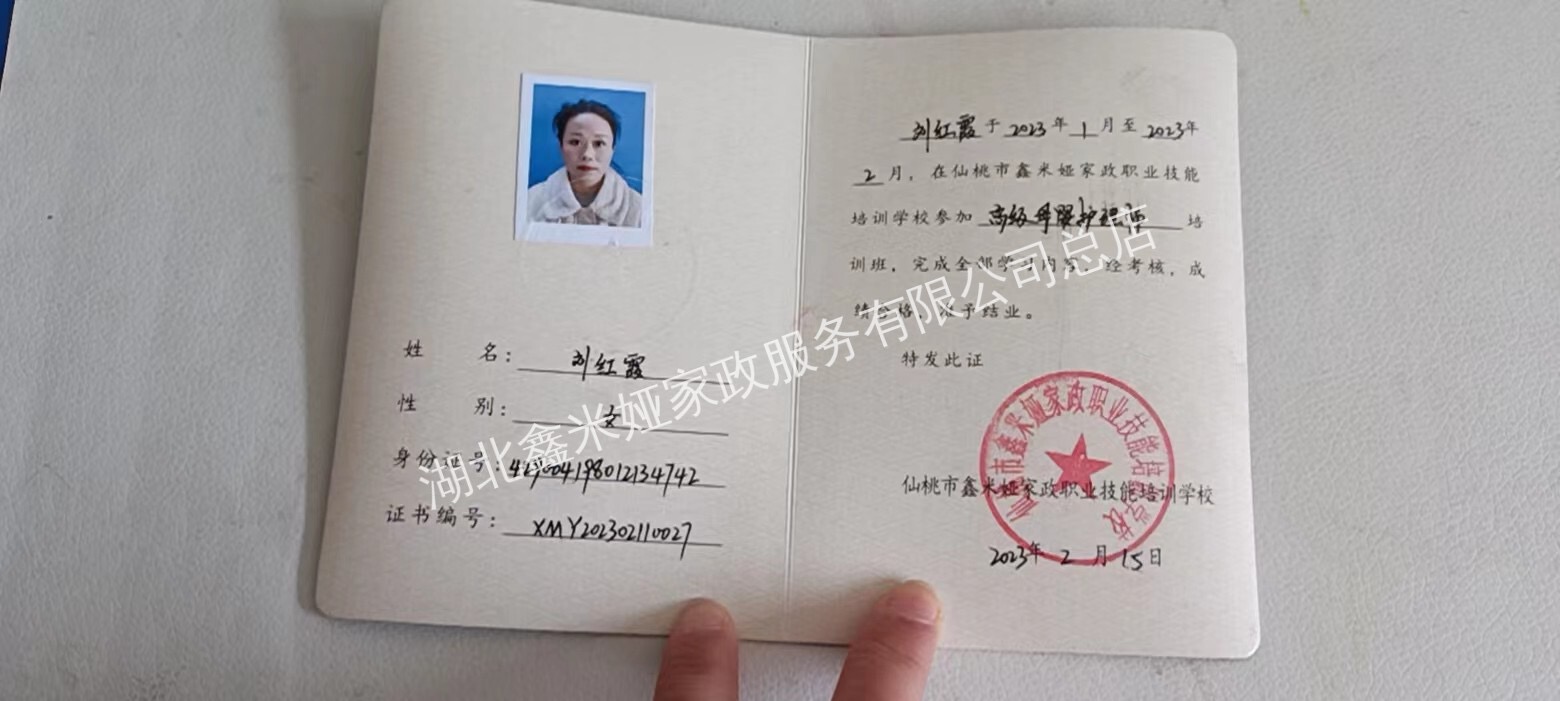 姓 名：刘红霞
性 别：女
身份证号：429004198012134742
证书编号：XMY202302110027
刘红霞于2023年1月至2023年
2月，在仙桃市鑫米娅家政职业技能
培训学校参加高级母婴护理师培
训班，完成全部学习内容，经考核，成
绩合格，准予结业。
特发此证
仙桃市鑫米娅家政职业技能培训学校
2023年2月15日
仙桃市鑫米娅家政职业技能培训学校
湖北鑫米娅家政服务有限公司总店